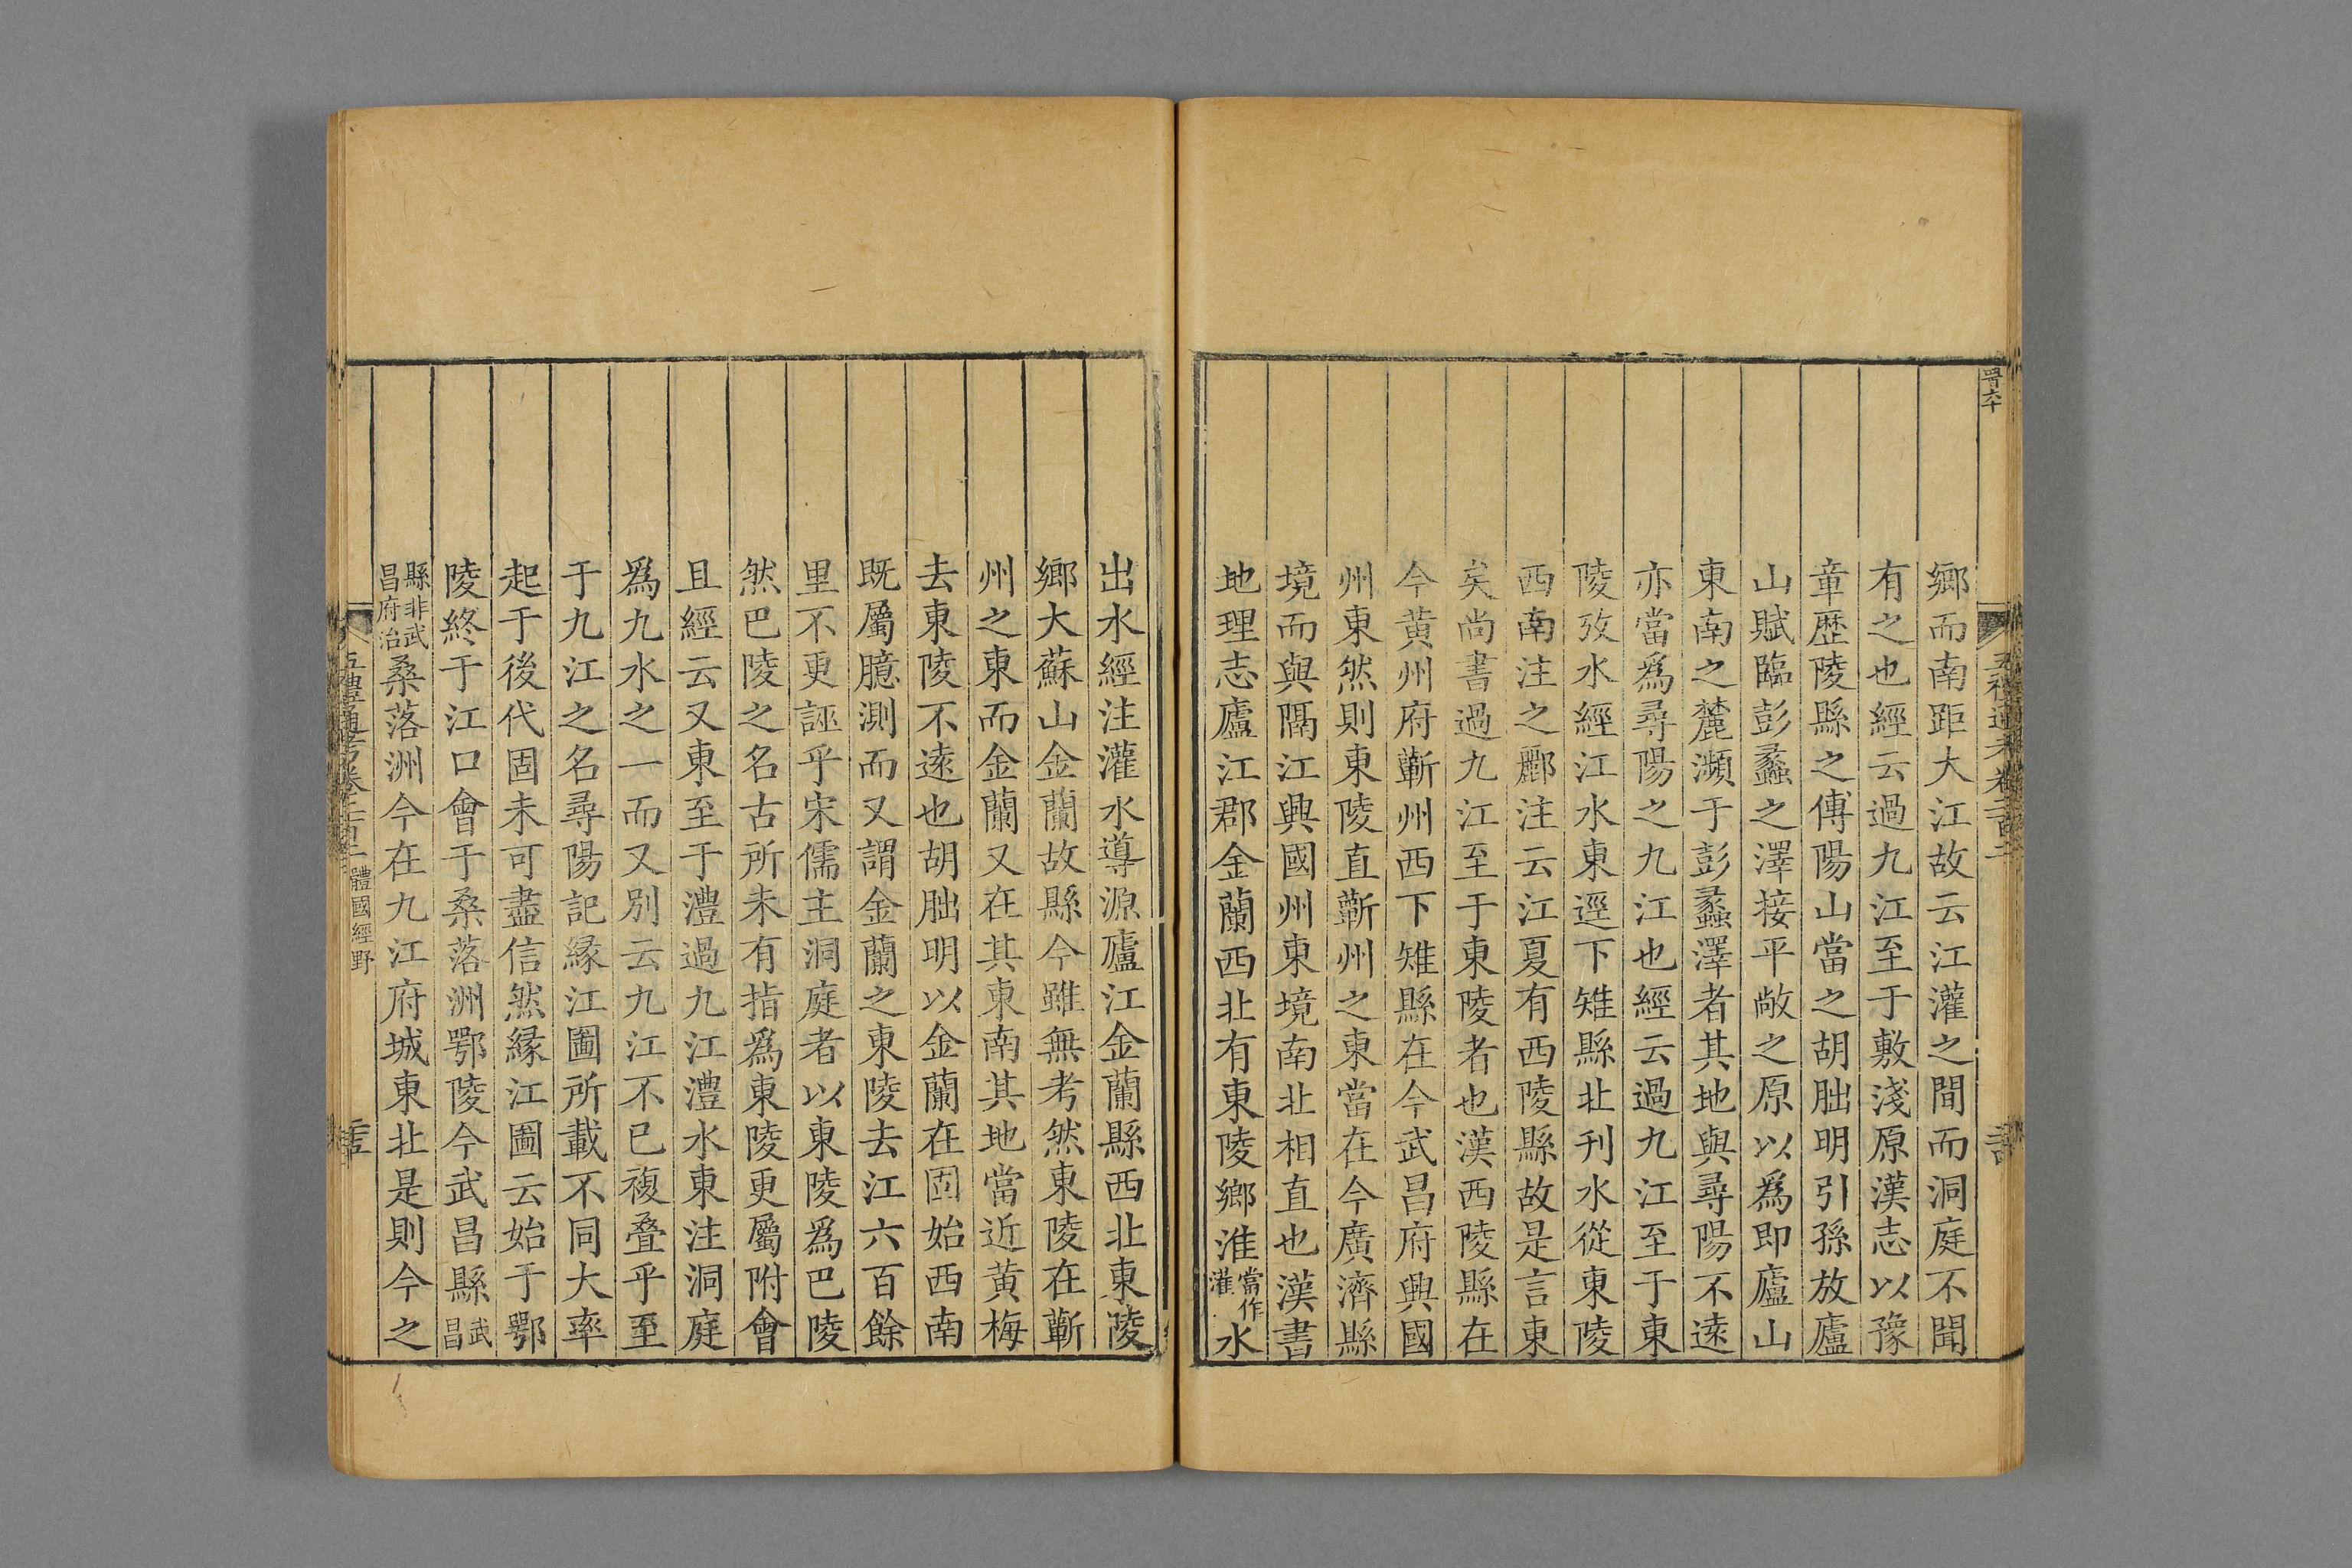 鄉而南距大江故云江灌之間而洞庭不聞
有之也經云過九江至于敷淺原漢志以豫
章歴陵縣之傅陽山當之胡朏明引孫放廬
山賦臨彭蠡之澤接平敞之原以爲即廬山
東南之麓瀕于彭蠡澤者其地與尋陽不遠
亦當爲尋陽之九江也經云過九江至于東
陵攷水經江水東逕下雉縣北刋水從東陵
西南注之酈注云江夏有西陵縣故是言東
矣尚書過九江至于東陵者也漢西陵縣在
今黄州府蘄州西下雉縣在今武昌府興國
州東然則東陵直蘄州之東當在今廣濟縣
境而與隔江興國州東境南北相直也漢書
地理志廬江郡金蘭西北有東陵鄉淮當作灌水
出水經注灌水導源廬江金蘭縣西北東陵
鄉大蘇山金蘭故縣今雖無考然東陵在蘄
州之東而金蘭又在其東南其地當近黄梅
去東陵不遠也胡朏明以金蘭在固始西南
既屬臆測而又謂金蘭之東陵去江六百餘
里不更誣乎宋儒主洞庭者以東陵爲巴陵
然巴陵之名古所未有指爲東陵更屬附會
且經云又東至于澧過九江澧水東注洞庭
爲九水之一而又別云九江不已複叠乎至
于九江之名尋陽記緣江圖所載不同大率
起于後代固未可盡信然緣江圖云始于鄂
陵終于江口會于桑落洲鄂陵今武昌縣武昌
縣非武昌府治桑落洲今在九江府城東北是則今之
五禮通考卷二百二 體國經野